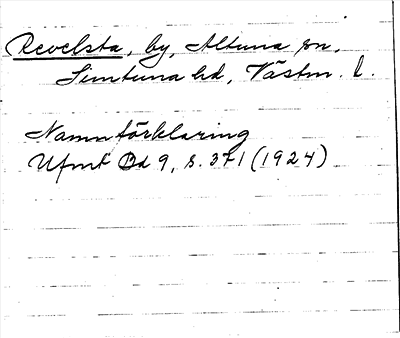 Revelsta, by, Altuna sn,
Simtuna hd, Västm. l.
Namnförklaring
Ufmt Bd 9, s. 371 (1924)